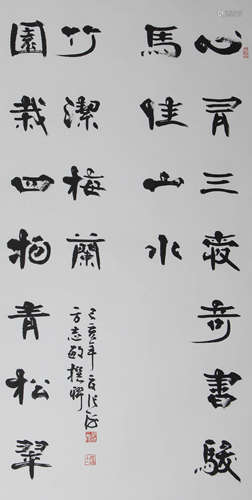 心有三愛奇書駿
馬佳山水
園栽四物青松翠
竹潔梅蘭
方志敏撰聯
己亥年